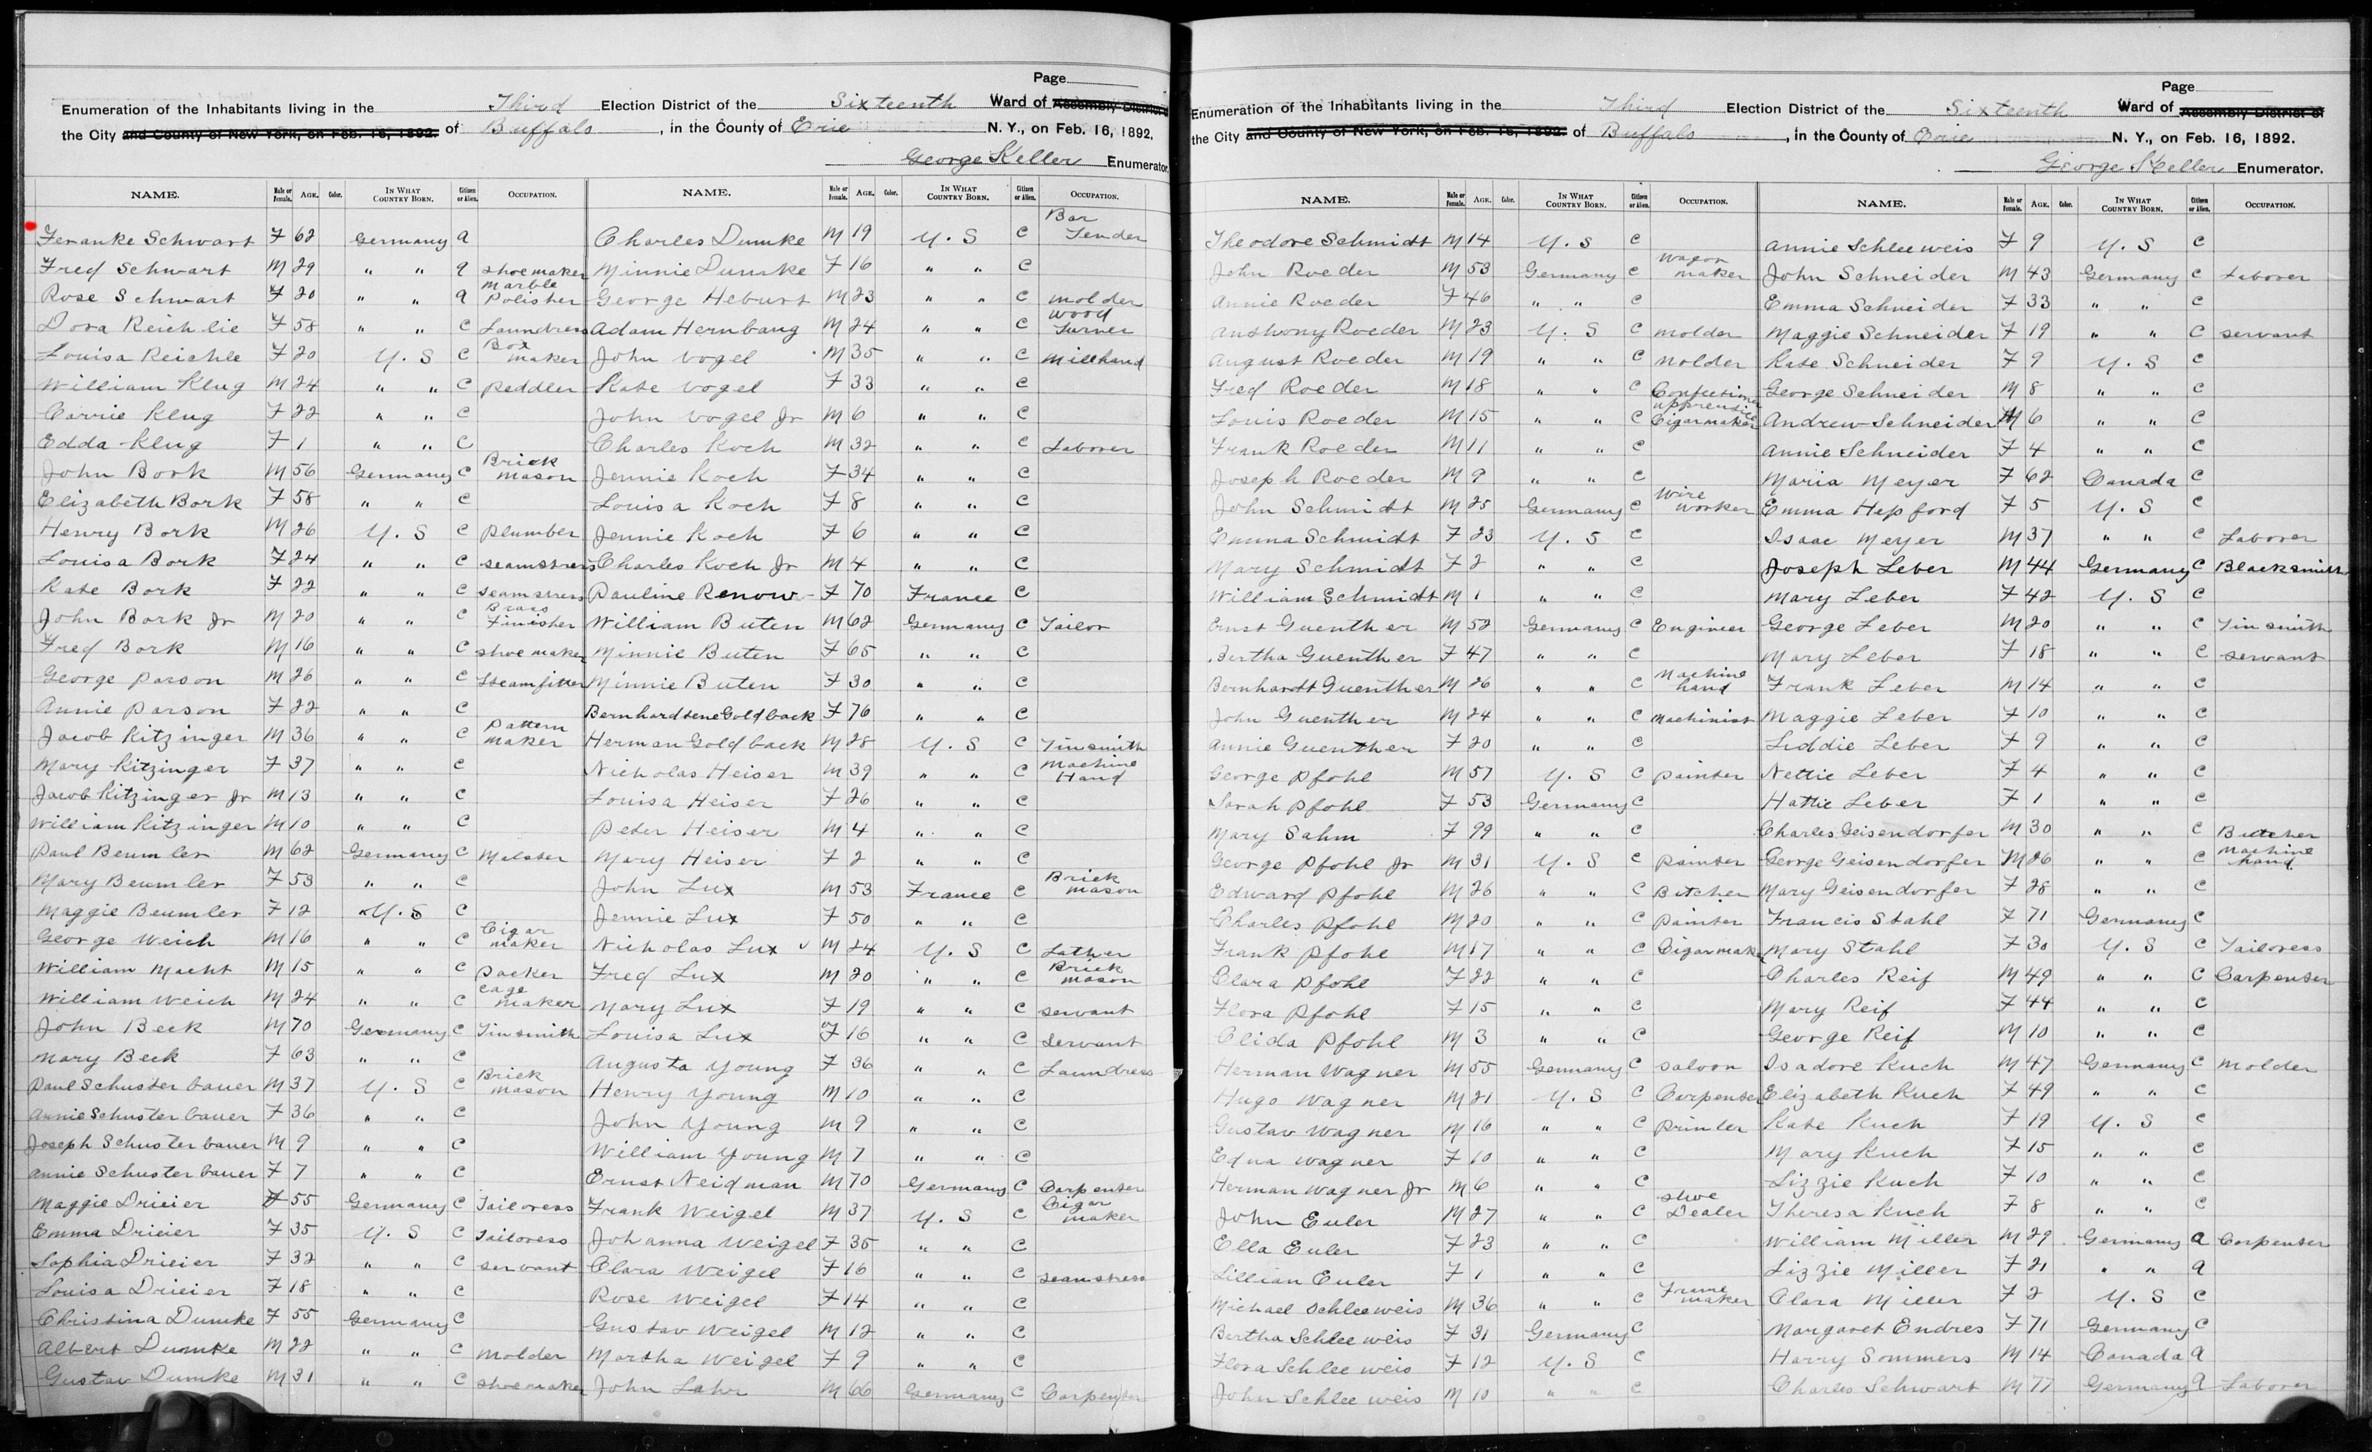 Page
Enumeration of the Inhabitants living in the Third Election District of the Sixteenth Ward of Assembly District
the City and County of New York, on Feb. 16, 1892. of Buffalo, in the County of Erie N. Y., on Feb. 16, 1892.
George Keller Enumerator.
NAME. Male or Female. AGE. Color. IN WHAT COUNTRY BORN. Citizen or Alien. OCCUPATION.
Feranke Schwart F 62 Germany a
Fred Schwart M 29 " " a shoemaker
Rose Schwart F 20 " " a Marble Polisher
Dora Reichlie F 58 " " C Laundress
Louisa Reichle F 20 U. S C Box maker
William Klug M 24 " " C peddler
Carrie Klug F 22 " " C
Edda Klug F 1 " " C
John Bork M 56 Germany C Brick mason
Elizabeth Bork F 58 " " C
Henry Bork M 26 U. S C plumber
Louisa Bork F 24 " " C seamstress
Kate Bork F 22 " " C seamstress
John Bork Jr M 20 " " C Brass Finisher
Fred Bork M 16 " " C shoe maker
George parson M 26 " " C Steamfitter
Annie parson F 22 " " C
Jacob Kitzinger M 36 " " C pattern maker
Mary Kitzinger F 37 " " C
Jacob Kitzinger Jr M 13 " " C
William Kitzinger M 10 " " C
Paul Beumler M 62 Germany C Malster
Mary Beumler F 53 " " C
Maggie Beumler F 12 " U. S C
George Weich M 16 " " C Cigar maker
William Macht M 15 " " C packer
William Weich M 24 " " C cage maker
John Beck M 70 Germany C Tinsmith
Mary Beck F 63 " " C
Paul Schusterbauer M 37 U. S C Brick mason
Annie Schusterbauer F 36 " " C
Joseph Schusterbauer M 9 " " C
Annie Schusterbauer F 7 " " C
Maggie Drieier F 55 Germany C Tailoress
Emma Drieier F 35 U. S C Tailoress
Sophia Drieier F 32 " " C servant
Louisa Drieier F 18 " " C
Christina Dumke F 55 Germany C
Albert Dumke M 22 " " C molder
Gustav Dumke M 31 " " C shoemaker
NAME. Male or Female. AGE. Color. IN WHAT COUNTRY BORN. Citizen or Alien. OCCUPATION.
Charles Dumke M 19 U. S C Bar Tender
Minnie Dumke F 16 " " C
George Heburt M 23 " " C molder
Adam Hernbang M 24 " " C wood Turner
John Vogel M 35 " " C Millhand
Kate Vogel F 33 " " C
John Vogel Jr M 6 " " C
Charles Koch M 32 " " C Laborer
Jennie Koch F 34 " " C
Louisa Koch F 8 " " C
Jennie Koch F 6 " " C
Charles Koch Jr M 4 " " C
Pauline Renow F 70 France C
William Buten M 62 Germany C Tailor
Minnie Buten F 65 " " C
Minnie Buten F 30 " " C
Bernhardtene Goldback F 76 " " C
Herman Goldback M 28 U. S C Tinsmith
Nicholas Heiser M 39 " " C Machine Hand
Louisa Heiser F 26 " " C
Peter Heiser M 4 " " C
Mary Heiser F 2 " " C
John Lux M 53 France C Brick mason
Jennie Lux F 50 " " C
Nicholas Lux M 24 U. S C Lather
Fred Lux M 20 " " C Brick mason
Mary Lux F 19 " " C servant
Louisa Lux F 16 " " C servant
Augusta Young F 36 " " C Laundress
Henry Young M 10 " " C
John Young M 9 " " C
William Young M 7 " " C
Ernst Neidman M 70 Germany C Carpenter
Frank Weigel M 37 U. S C Cigar maker
Johanna Weigel F 35 " " C
Clara Weigel F 16 " " C seamstress
Rose Weigel F 14 " " C
Gustav Weigel M 12 " " C
Martha Weigel F 9 " " C
John Lahr M 66 Germany C Carpenter
Page
Enumeration of the Inhabitants living in the Third Election District of the Sixteenth Ward of Assembly District of
the City and County of New York, on Feb. 16, 1892. of Buffalo, in the County of Erie N. Y., on Feb. 16, 1892.
George Keller Enumerator.
NAME. Male or Female. AGE. Color. IN WHAT COUNTRY BORN. Citizen or Alien. OCCUPATION.
Theodore Schmidt M 14 U. S C
John Roeder M 53 Germany C Wagon maker
Annie Roeder F 46 " " C
Anthony Roeder M 23 U. S C molder
August Roeder M 19 " " C molder
Fred Roeder M 18 " " C Confectioner
Louis Roeder M 15 " " C apprentice Cigarmaker
Frank Roeder M 11 " " C
Joseph Roeder M 9 " " C
John Schmidt M 25 Germany C Wire worker
Emma Schmidt F 23 U. S C
Mary Schmidt F 2 " " C
William Schmidt M 1 " " C
Ernst Guenther M 52 Germany C Engineer
Bertha Guenther F 47 " " C
Bernhardt Guenther M 26 " " C Machine hand
John Guenther M 24 " " C Machinist
Annie Guenther F 20 " " C
George Pfohl M 57 U. S C painter
Sarah Pfohl F 53 Germany C
Mary Sahm F 99 " " C
George Pfohl Jr M 31 U. S C painter
Edward Pfohl M 26 " " C Butcher
Charles Pfohl M 20 " " C painter
Frank Pfohl M 17 " " C Cigarmaker
Clara Pfohl F 22 " " C
Flora Pfohl F 15 " " C
Clida Pfohl M 3 " " C
Herman Wagner M 55 Germany C saloon
Hugo Wagner M 21 U. S C Carpenter
Gustav Wagner M 16 " " C printer
Edna Wagner F 10 " " C
Herman Wagner Jr M 6 " " C
John Euler M 27 " " C shoe Dealer
Ella Euler F 23 " " C
Lillian Euler F 1 " " C
Michael Schleeweis M 36 " " C Frame maker
Bertha Schleeweis F 31 Germany C
Flora Schleeweis F 12 U. S C
John Schleeweis M 10 " " C
NAME. Male or Female. AGE. Color. IN WHAT COUNTRY BORN. Citizen or Alien. OCCUPATION.
Annie Schleeweis F 9 U. S C
John Schneider M 43 Germany C Laborer
Emma Schneider F 33 " " C
Maggie Schneider F 19 " " C servant
Kate Schneider F 9 U. S C
George Schneider M 8 " " C
Andrew Schneider M 6 " " C
Annie Schneider F 4 " " C
Maria Meyer F 62 Canada C
Emma Hepford F 5 U. S C
Isaac Meyer M 37 " " C Laborer
Joseph Leber M 44 Germany C Blacksmith
Mary Leber F 42 U. S C
George Leber M 20 " " C Tinsmith
Mary Leber F 18 " " C servant
Frank Leber M 14 " " C
Maggie Leber F 10 " " C
Liddie Leber F 9 " " C
Nettie Leber F 4 " " C
Hattie Leber F 1 " " C
Charles Geisendorfer M 30 " " C Butcher
George Geisendorfer M 26 " " C Machine hand
Mary Geisendorfer F 28 " " C
Francis Stahl F 71 Germany C
Mary Stahl F 30 U. S C Tailoress
Charles Reif M 49 " " C Carpenter
Mary Reif F 44 " " C
George Reif M 10 " " C
Isadore Kuch M 47 Germany C Molder
Elizabeth Kuch F 49 " " C
Kate Kuch F 19 U. S C
Mary Kuch F 15 " " C
Lizzie Kuch F 10 " " C
Theresa Kuch F 8 " " C
William Miller M 29 Germany a Carpenter
Lizzie Miller F 21 " " a
Clara Miller F 2 U. S C
Margaret Endres F 71 Germany C
Harry Sommers M 14 Canada a
Charles Schwart M 77 Germany a Laborer